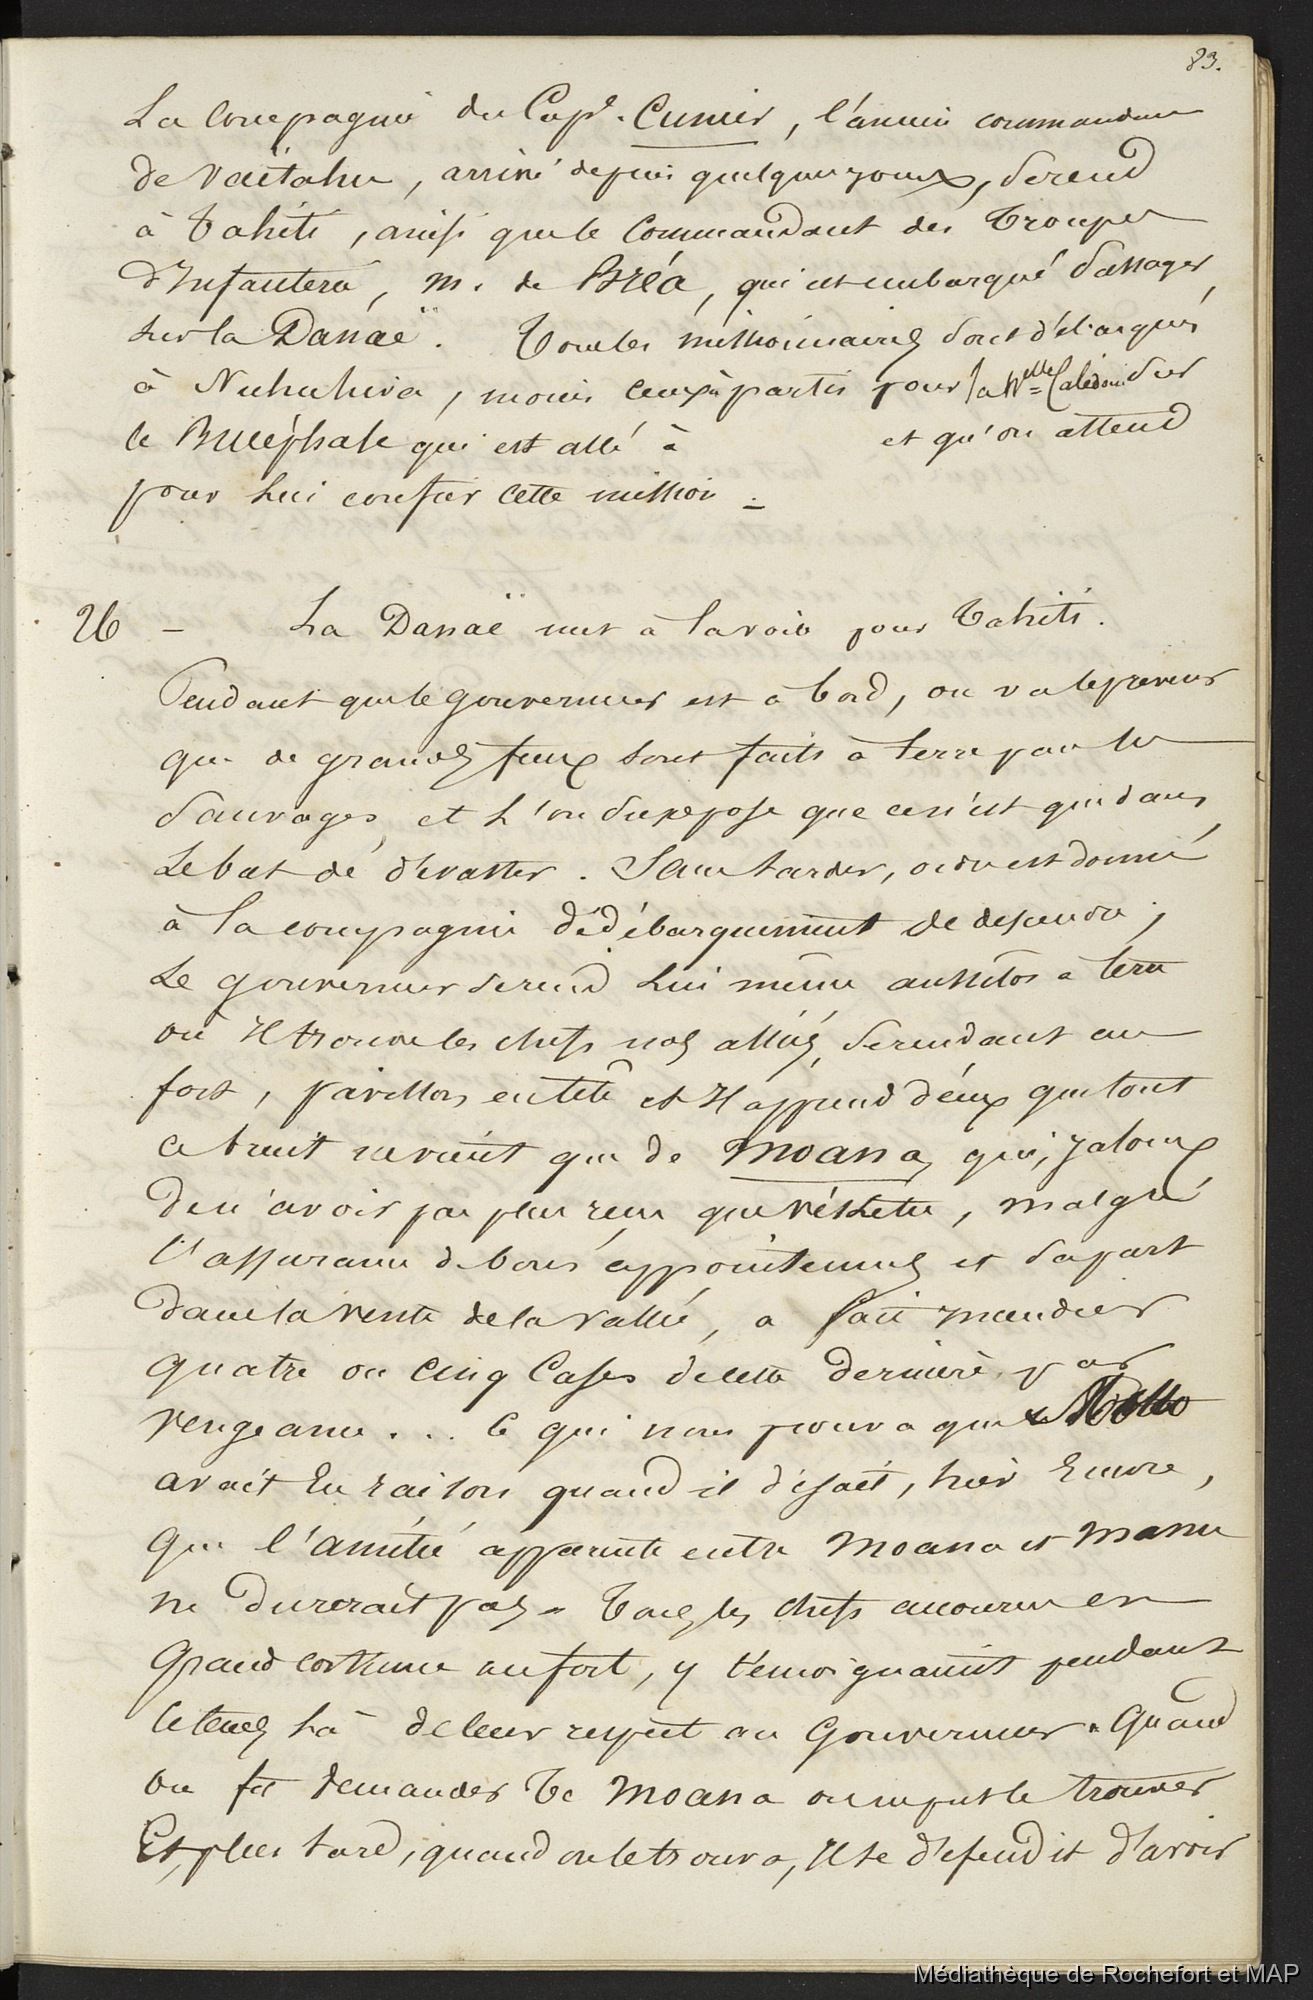 83.
La Compagnie du Cap.e Cunier, l'ancien commandant
de Vaïtahu, arrivé depuis quelques jours, se rend
à Tahiti, ainsi que le Commandant des Troupes
d'Infanterie, M. de Bréa, qui est embarqué passager,
sur la Danaë. Tous les missionnaires sont débarqués
à Nuhuhiva, moins ceux à partir pour la Nelle Calédonie sur
le Bucéphale qui est allé à et qu'on attend
pour lui confier cette mission. _
26 - La Danaë met à la voile pour Tahiti.
Pendant que le gouverneur est à bord, on va le prévenir
que de grands feux sont faits à terre par les
Sauvages, et l'on suppose que ce n'est que dans
le but de dévaster. Sans tarder, ordre est donné
à la compagnie de débarquement de descendre;
Le gouverneur se rend lui même aussitôt à terre
où il trouve les chefs nos alliés, se rendant au
fort, pavillon en tête et il apprend d'eux que tout
ce bruit ne vient que de Moana, qui, jaloux
de n'avoir pas plus reçu que Véskétu, malgré
l'assurance de bons appointemens et sa part
dans la vente de la vallée, a fait incendier
quatre ou cinq Cases de cette dernière, par
vengeance... Ce qui nous prouva que
avait eu raison quand il disait, hier encore,
que l'amitié apparente entre Moana et Manu
ne durerait pas. Tous les chefs accourus en
Grand costume au fort, y témoignaient pendant
ce tems là de leur respect au Gouverneur. Quand
on fit demander Te Moana on ne put le trouver
Et, plus tard, quand on le trouva, Il se défendit d'avoir
Médiathèque de Rochefort et MAP